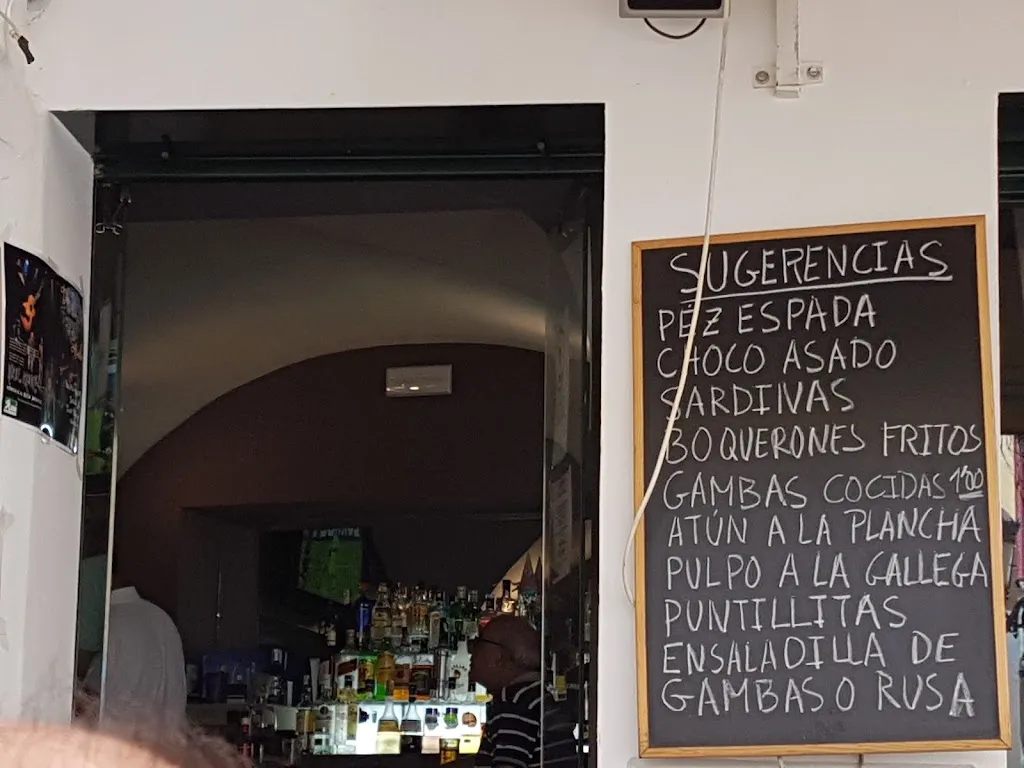 SUGERENCIAS
PEZ ESPADA
CHOCO ASADO
SARDINAS
BOQUERONES FRITOS
GAMBAS COCIDAS 1'00
ATÚN A LA PLANCHA
PULPO A LA GALLEGA
PUNTILLITAS
ENSALADILLA DE
GAMBAS O RUSA